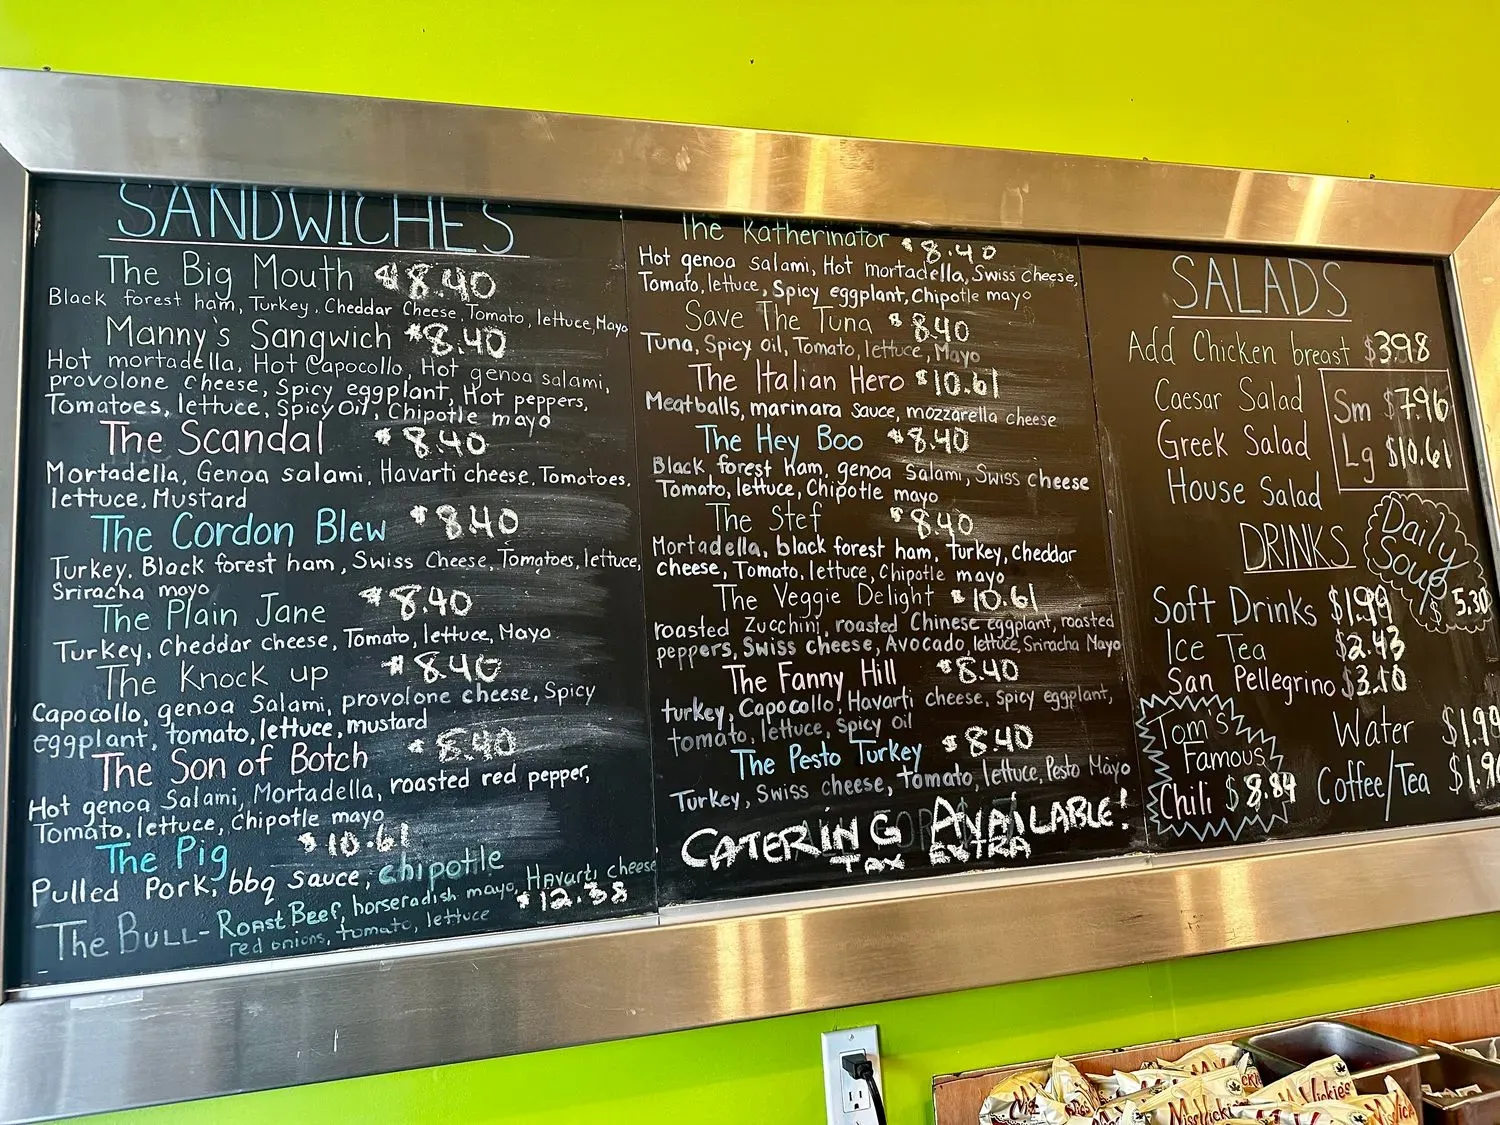 SANDWICHES
The Big Mouth $8.40
Black forest ham, Turkey, Cheddar Cheese, Tomato, lettuce, Mayo
Manny's Sangwich $8.40
Hot mortadella, Hot Capocollo, Hot genoa salami,
provolone cheese, Spicy eggplant, Hot peppers,
Tomatoes, lettuce, Spicy Oil, Chipotle mayo
The Scandal $8.40
Mortadella, Genoa salami, Havarti cheese, Tomatoes,
lettuce, Mustard
The Cordon Blew $8.40
Turkey, Black forest ham, Swiss Cheese, Tomatoes, lettuce,
Sriracha mayo
The Plain Jane $8.40
Turkey, Cheddar cheese, Tomato, lettuce, Mayo
The Knock up $8.40
Capocollo, genoa Salami, provolone cheese, Spicy
eggplant, tomato, lettuce, mustard
The Son of Botch $8.40
Hot genoa Salami, Mortadella, roasted red pepper,
Tomato, lettuce, Chipotle mayo
The Pig $10.61
Pulled Pork, bbq sauce, chipotle
The BULL - Roast Beef, horseradish mayo, Havarti cheese
red onions, tomato, lettuce $12.38
The Katherinator $8.40
Hot genoa salami, Hot mortadella, Swiss cheese,
Tomato, lettuce, Spicy eggplant, Chipotle mayo
Save The Tuna $8.40
Tuna, Spicy oil, Tomato, lettuce, Mayo
The Italian Hero $10.61
Meatballs, marinara sauce, mozzarella cheese
The Hey Boo $8.40
Black forest ham, genoa Salami, Swiss cheese
Tomato, lettuce, Chipotle mayo
The Stef $8.40
Mortadella, black forest ham, Turkey, Cheddar
cheese, Tomato, lettuce, Chipotle mayo
The Veggie Delight $10.61
roasted Zucchini, roasted Chinese eggplant, roasted
peppers, Swiss cheese, Avocado, lettuce, Sriracha Mayo
The Fanny Hill $8.40
turkey, Capocollo, Havarti cheese, spicy eggplant,
tomato, lettuce, Spicy oil
The Pesto Turkey $8.40
Turkey, Swiss cheese, tomato, lettuce, Pesto Mayo
CATERING AVAILABLE!
TAX EXTRA
SALADS
Add Chicken breast $3.98
Caesar Salad
Greek Salad
House Salad
Sm $7.96
Lg $10.61
Daily
Soup
$5.30
DRINKS
Soft Drinks $1.99
Ice Tea $2.43
San Pellegrino $3.10
Water $1.99
Coffee/Tea
Tom's
Famous
Chili $8.84
Miss Vickie's
Vickie's